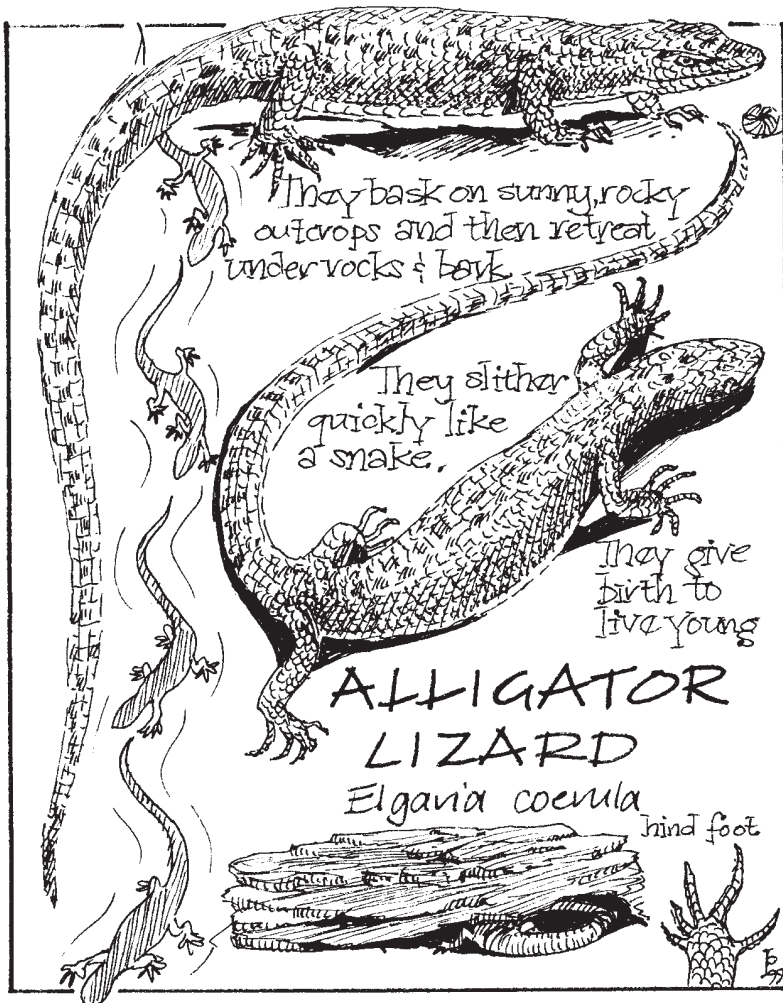 They bask on sunny, rocky
outcrops and then retreat
under rocks & bark
They slither
quickly like
a snake.
They give
birth to
live young
ALLIGATOR
LIZARD
Elgaria coerula
hind foot